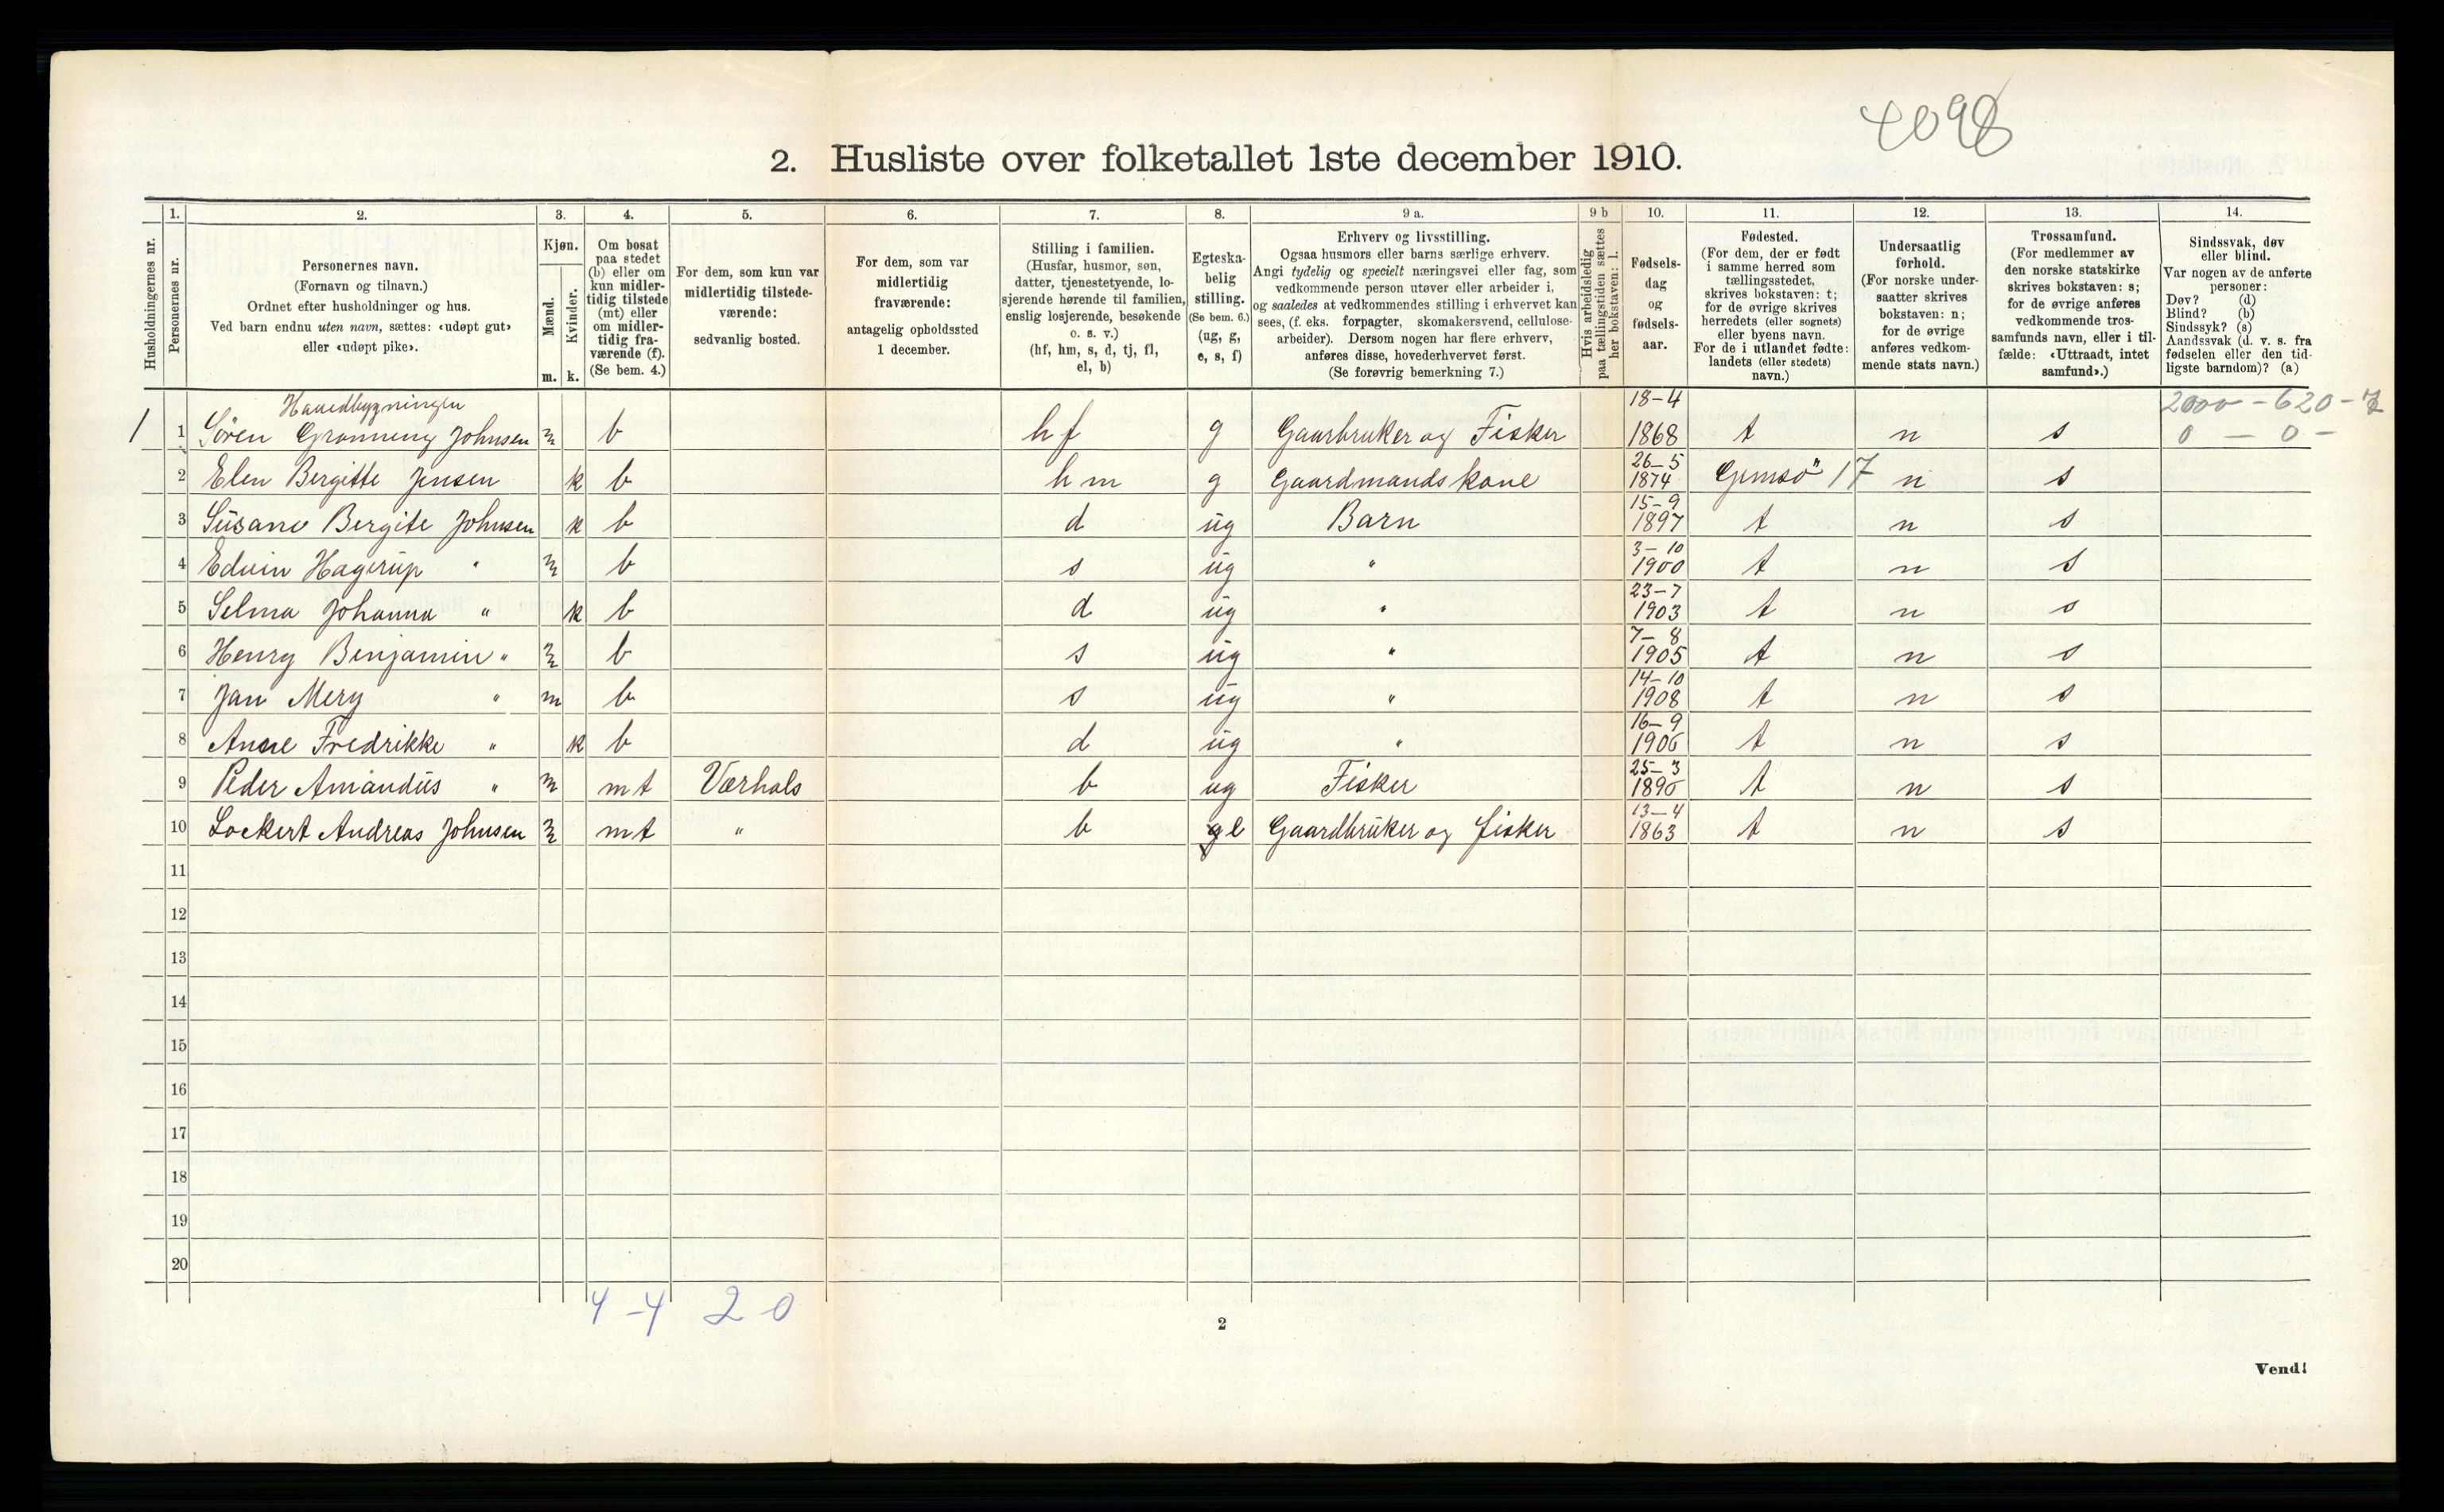 4098
2. Husliste over folketallet 1ste december 1910.
Husholdningernes nr.
1.
Personernes nr.
2.
Personernes navn.
(Fornavn og tilnavn.)
Ordnet efter husholdninger og hus.
Ved barn endnu uten navn, sættes: «udøpt gut»
eller «udøpt pike».
3.
Kjøn.
Mænd.
Kvinder.
m. k.
4.
Om bosat
paa stedet
(b) eller om
kun midler-
tidig tilstede
(mt) eller
om midler-
tidig fra-
værende (f).
(Se bem. 4.)
5.
For dem, som kun var
midlertidig tilstede-
værende:
sedvanlig bosted.
6.
For dem, som var
midlertidig
fraværende:
antagelig opholdssted
1 december.
7.
Stilling i familien.
(Husfar, husmor, søn,
datter, tjenestetyende, lo-
sjerende hørende til familien,
enslig losjerende, besøkende
o. s. v.)
(hf, hm, s, d, tj, fl,
el, b)
8.
Egteska-
belig
stilling.
(Se bem. 6.)
(ug, g,
e, s, f)
9 a.
Erhverv og livsstilling.
Ogsaa husmors eller barns særlige erhverv.
Angi tydelig og specielt næringsvei eller fag, som
vedkommende person utøver eller arbeider i,
og saaledes at vedkommendes stilling i erhvervet kan
sees, (f. eks. forpagter, skomakersvend, cellulose-
arbeider). Dersom nogen har flere erhverv,
anføres disse, hovederhvervet først.
(Se forøvrig bemerkning 7.)
9 b
Hvis arbeidsledig
paa tællingstiden sættes
her bokstaven: l.
10.
Fødsels-
dag
og
fødsels-
aar.
11.
Fødested.
(For dem, der er født
i samme herred som
tællingsstedet,
skrives bokstaven: t;
for de øvrige skrives
herredets (eller sognets)
eller byens navn.
For de i utlandet fødte:
landets (eller stedets)
navn.)
12.
Undersaatlig
forhold.
(For norske under-
saatter skrives
bokstaven: n;
for de øvrige
anføres vedkom-
mende stats navn.)
13.
Trossamfund.
(For medlemmer av
den norske statskirke
skrives bokstaven: s;
for de øvrige anføres
vedkommende tros-
samfunds navn, eller i til-
fælde: «Uttraadt, intet
samfund».)
14.
Sindssvak, døv
eller blind.
Var nogen av de anførte
personer:
Døv? (d)
Blind? (b)
Sindssyk? (s)
Aandssvak (d. v. s. fra
fødselen eller den tid-
ligste barndom)? (a)
Hauedbygningen 18-4 2000 - 620 -
1 1 Sören Grønning Johnsen m b hf g Gaarbruker og Fisker 1868 t n s 0 - 0 -
2 Elen Bergitte Jensen k b hm g Gaardmandskone 26-5 1874 Gimsö 17 n s
3 Susane Bergite Johnsen k b d ug Barn 15-9 1897 t n s
4 Edvin Hagerup " m b s ug " 3-10 1900 t n s
5 Selma Johanna " k b d ug " 23-7 1903 t n s
6 Henry Benjamin " m b s ug " 7-8 1905 t n s
7 Jan Mery " m b s ug " 14-10 1908 t n s
8 Anne Fredrikke " k b d ug " 16-9 1906 t n s
9 Peder Amandus " m mt Værhals b ug Fisker 25-3 1890 t n s
10 Lockert Andreas Johnsen m mt " b e Gaardbruker og fisker 13-4 1863 t n s
11
12
13
14
15
16
17
18
19
20
4-4 2 0
2
Vend!